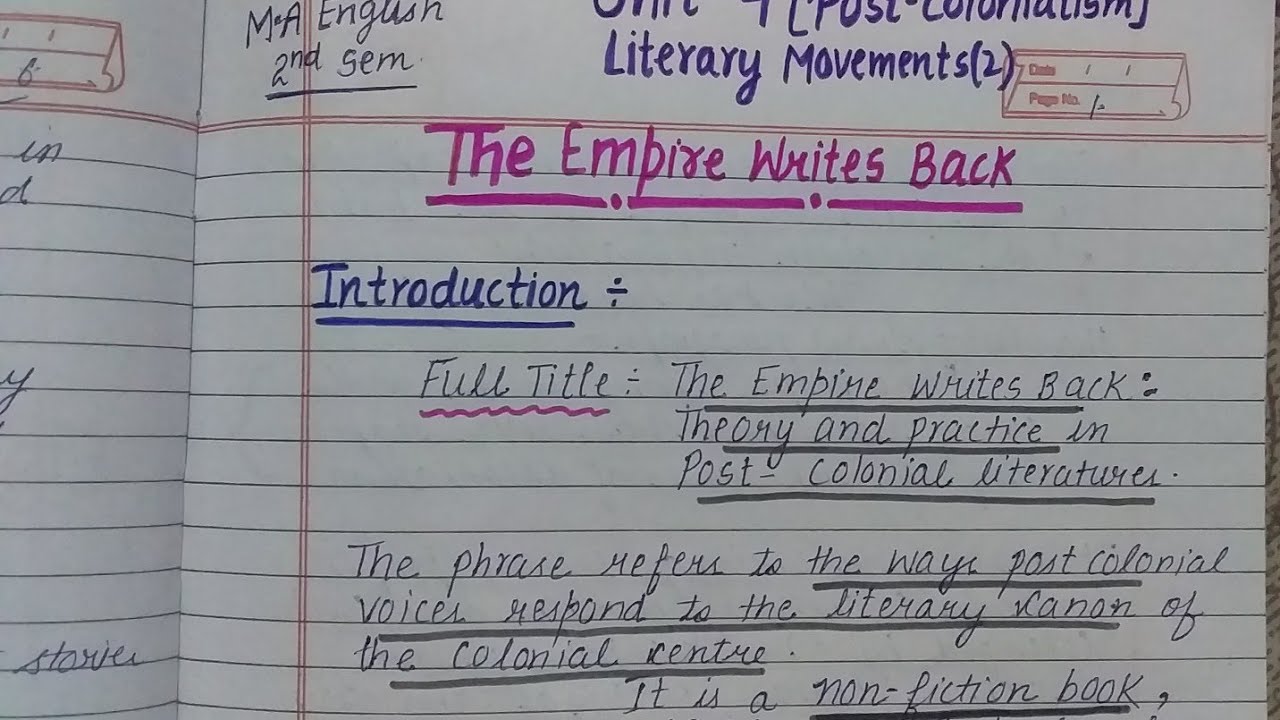 M.A English
2nd Sem.
Unit - [Post-Colonialism]
Literary Movements(2)
Date / /
Page No. 1.
6.
in
d
y
stories
The Empire Writes Back
Introduction ÷
Full Title ÷ The Empire Writes Back :
Theory and practice in
Post- Colonial literatures.
The phrase refers to the ways post colonial
voices respond to the literary canon of
the colonial centre.
It is a non-fiction book,